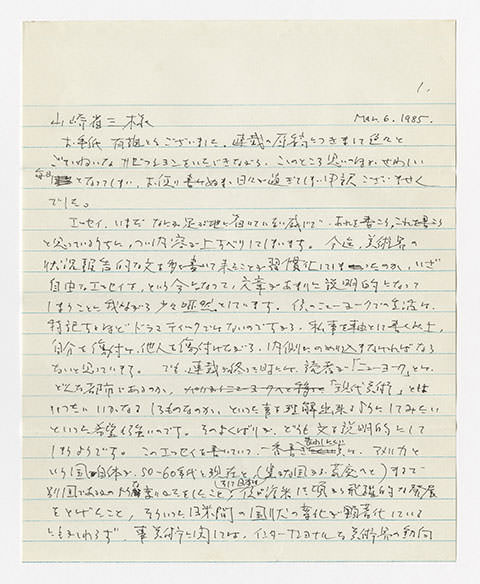 1.
山崎省三様 Mar. 6. 1985.
お手紙有難とうございました。連載の原稿につきまして色々と
ごていねいな をいただきながら、このところ思いのほかせわしい
毎日 となってしまい、お便り書けぬまま日々が過ぎてしまい申訳ございません
でした。
エッセイ、いまだなんか足が地に着いていない感じで、あれを書こう、これを書こう
と思っているうちに、つい内容が上すべりしてしまいます。今迄、美術界の
状況報告的な文を 書いて来たことが習慣化してしまったのか、いざ
自由なエッセイを、という今になって、文章があまりに説明的になって
しまうことに我ながら少々唖然としています。僕のニューヨークでの生活は、
特記するほどドラマティックでもないのですから、私事を軸として書く以上、
自分を傷付け、他人を傷付けながら、内側にのめり込まなければならな
ないと思っています。でも連載が終った時には、読者が「ニューヨーク」とは
どんな都市であるのか、 「現代美術」とは
いったいいかなるものなのか、といった事を理解出来るようにしてみたい
といった希望も強いのです。そのよくばりが、どうも文を説明的にして
しまうようです。このエッセイを書いていて、一番書き たいことは、アメリカ
という国自体が、50–60年代と現在と、(豊かな国から 国へと)まるで
別国であるかの如く 変わったこと、そして日本は、僕が渡米した頃から飛躍的な発展
をとげたこと、そういった日米間の国状の変化が顕著化している
にもかかわらず、事美術に関しては、インターナショナルな美術界の動向